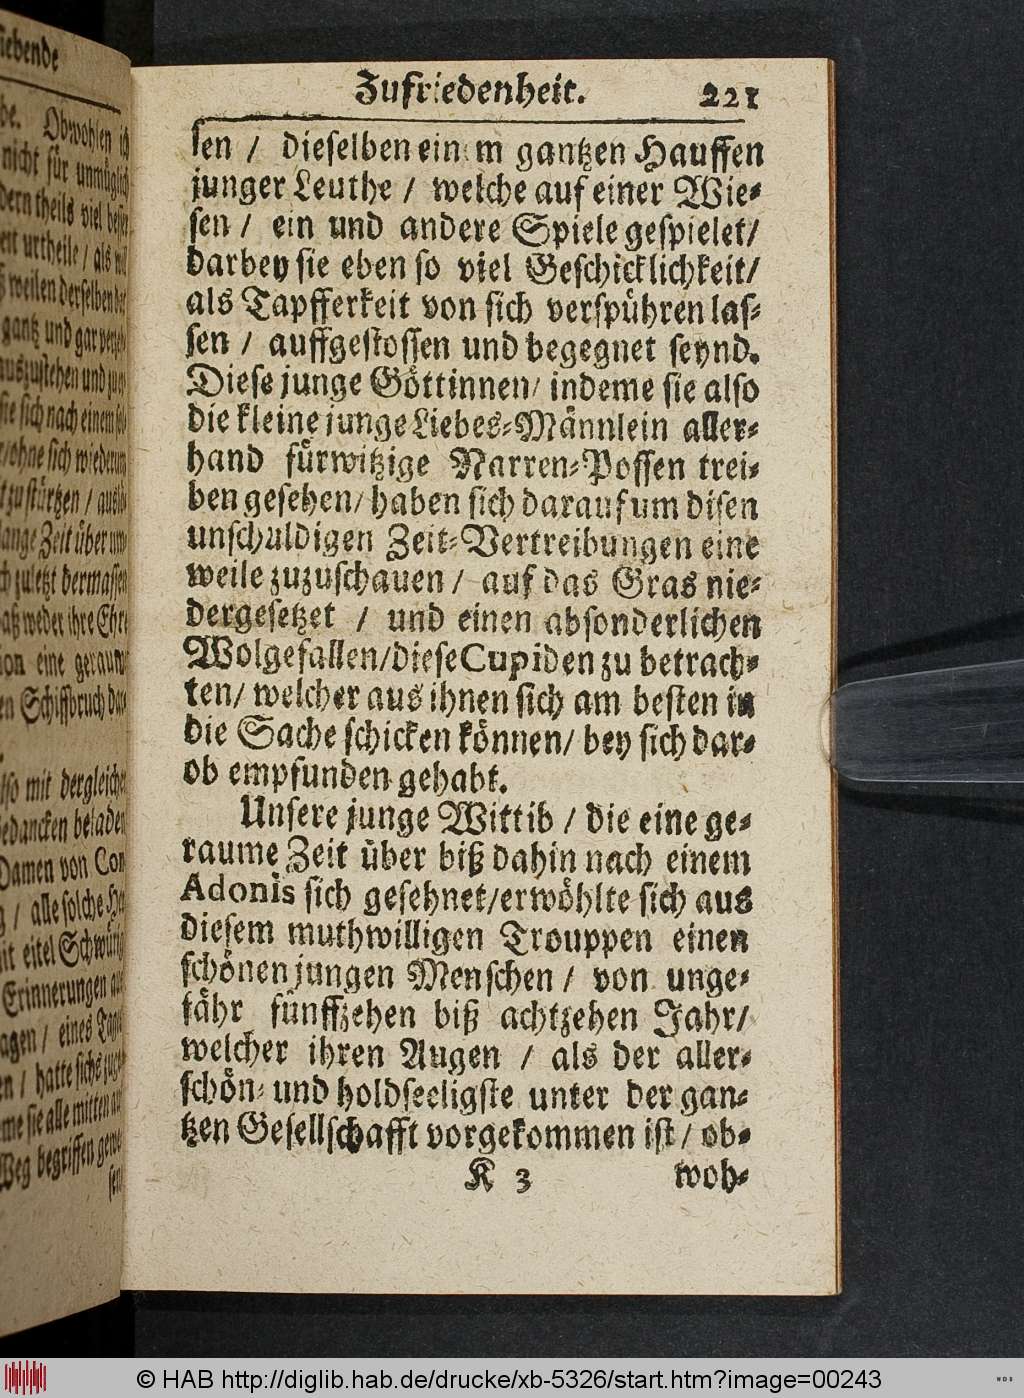 siebende
be. Obwohlen ich
nicht für unmüglich
dern theils viel besser
urtheile / als
weilen derselben
gantz und gar
auszustehen und
sie sich nach einem
/ ohne sich wiederum
zu stürtzen /
lange Zeit über
zuletzt dermassen
weder ihre Ehre
eine geraume
Schiffbruch
mit dergleichen
Gedancken beladen
Damen von
/ alle solche
eitel
Erinnerungen
/ eines
/ hatte
sie alle mitten
Weg begriffen
sen
Zufriedenheit. 221
sen / dieselben einem gantzen Hauffen
junger Leuthe / welche auf einer Wie-
sen / ein und andere Spiele gespielet/
darbey sie eben so viel Geschicklichkeit/
als Tapfferkeit von sich verspühren las-
sen / auffgestossen und begegnet seynd.
Diese junge Göttinnen/ indeme sie also
die kleine junge Liebes-Männlein aller-
hand fürwitzige Narren-Possen trei-
ben gesehen/ haben sich darauf um disen
unschuldigen Zeit-Vertreibungen eine
weile zuzuschauen / auf das Gras nie-
dergesetzet / und einen absonderlichen
Wolgefallen/diese Cupiden zu betrach-
ten/ welcher aus ihnen sich am besten in
die Sache schicken können/ bey sich dar-
ob empfunden gehabt.
Unsere junge Wittib / die eine ge-
raume Zeit über biß dahin nach einem
Adonis sich gesehnet/erwöhlte sich aus
diesem muthwilligen Trouppen einen
schönen jungen Menschen / von unge-
fähr fünffzehen biß achtzehen Jahr/
welcher ihren Augen / als der aller-
schön- und holdseeligste unter der gan-
tzen Gesellschafft vorgekommen ist / ob-
K 3 woh-
© HAB http://diglib.hab.de/drucke/xb-5326/start.htm?image=00243